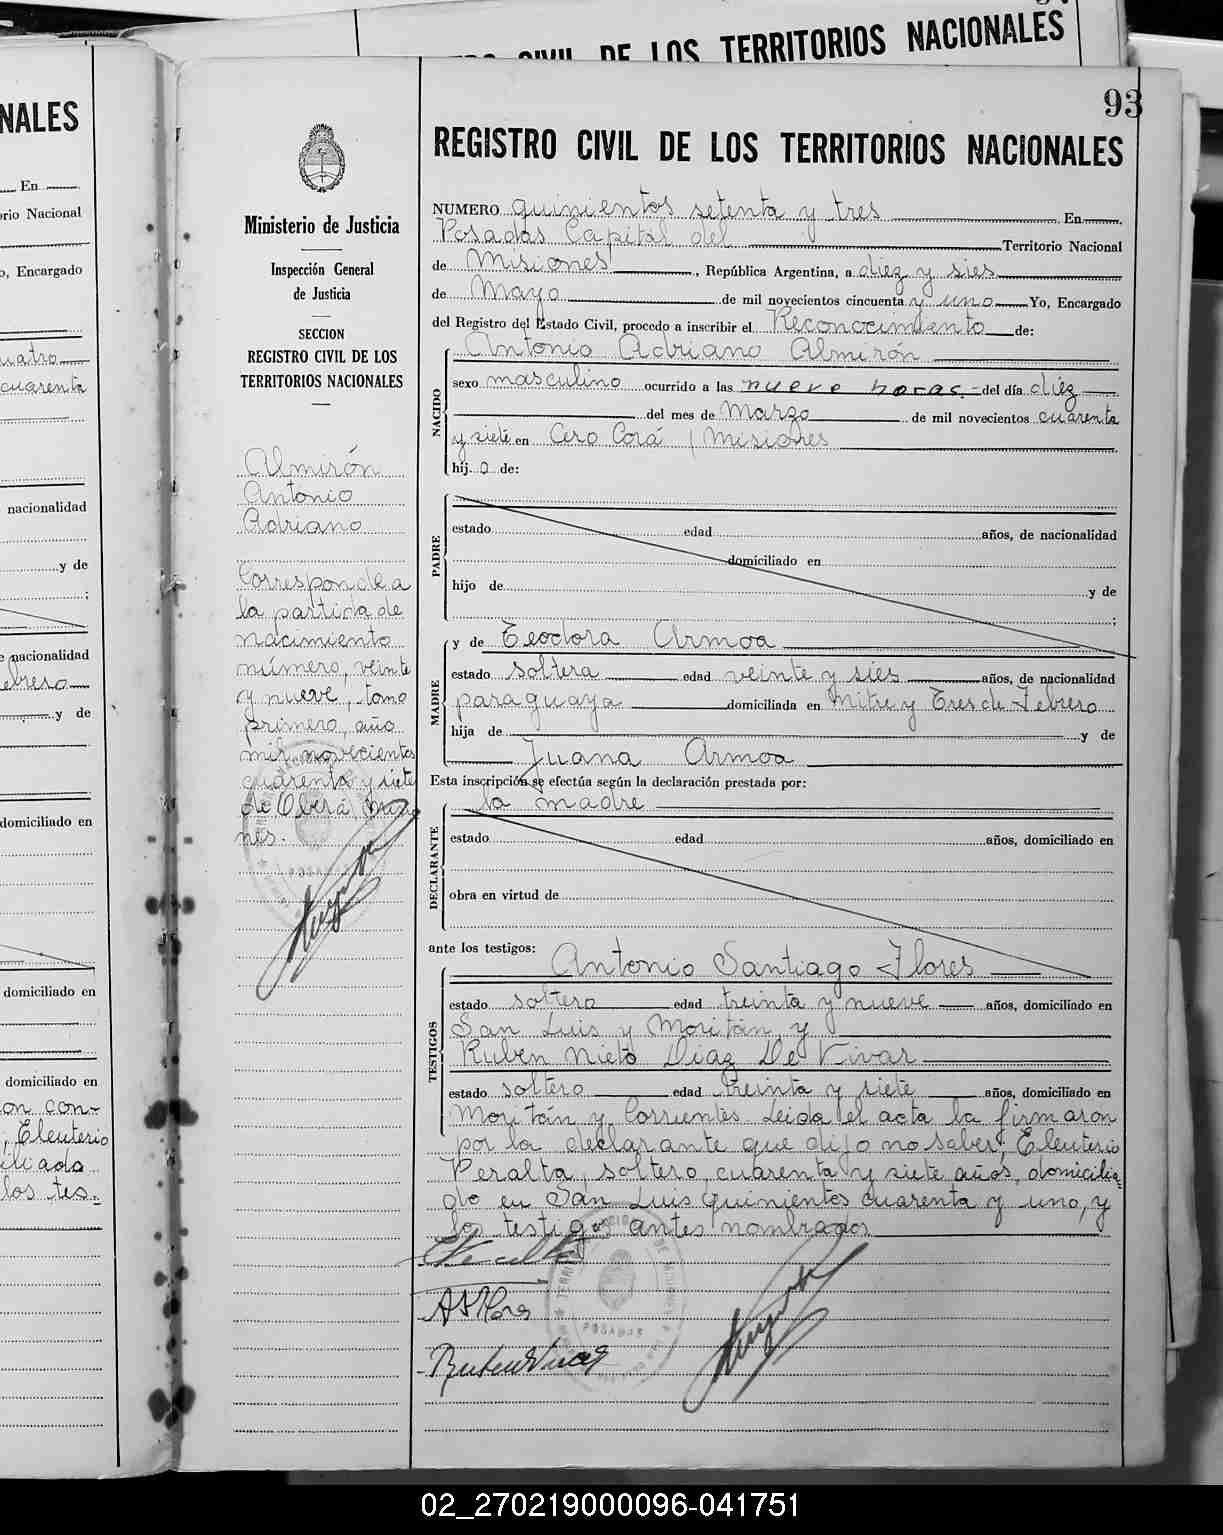 DE LOS TERRITORIOS NACIONALES
NALES
En
rio Nacional
o, Encargado
uatro
cuarenta
nacionalidad
y de
e nacionalidad
ebrero
y de
domiciliado en
domiciliado en
domiciliado en
on con-
, Eleuterio
iliado
los tes.
93
Ministerio de Justicia
Inspección General
de Justicia
SECCION
REGISTRO CIVIL DE LOS
TERRITORIOS NACIONALES
Almirón
Antonio
Adriano
Corresponde a
la partida de
nacimiento
número, veinte
y nueve, tomo
primero, año
mil novecientos
cuarenta y siete
de Oberá, Misio
nes.
REGISTRO CIVIL DE LOS TERRITORIOS NACIONALES
NUMERO quinientos setenta y tres En
Posadas Capital del Territorio Nacional
de Misiones, República Argentina, a diez y sies
de Mayo de mil novecientos cincuenta y uno Yo, Encargado
del Registro del Estado Civil, procedo a inscribir el Reconocimiento de:
NACIDO
Antonio Adriano Almirón
sexo masculino ocurrido a las nueve horas del día diez
del mes de Marzo de mil novecientos cuarenta
y siete en Cero Corá, Misiones
hijo de:
PADRE
estado edad años, de nacionalidad
domiciliado en
hijo de y de
;
MADRE
y de Teodora Armoa
estado soltera edad veinte y sies años, de nacionalidad
paraguaya domiciliada en Mitre y Tres de Febrero
hija de y de
Juana Armoa
Esta inscripción se efectúa según la declaración prestada por:
DECLARANTE
la madre
estado edad años, domiciliado en
obra en virtud de
ante los testigos:
TESTIGOS
Antonio Santiago Flores
estado soltero edad treinta y nueve años, domiciliado en
San Luis y Moritán y
Ruben Nieto Diaz De Vivar
estado soltero edad treinta y siete años, domiciliado en
Moritán y Corrientes Leida el acta la firmaron
por la declarante que dijo no saber, Eleuterio
Peralta, soltero, cuarenta y siete años, domicilia-
do en San Luis quinientos cuarenta y uno, y
los testigos antes nombrados
EPeralta
ASFlores
POSADAS
02_270219000096-041751